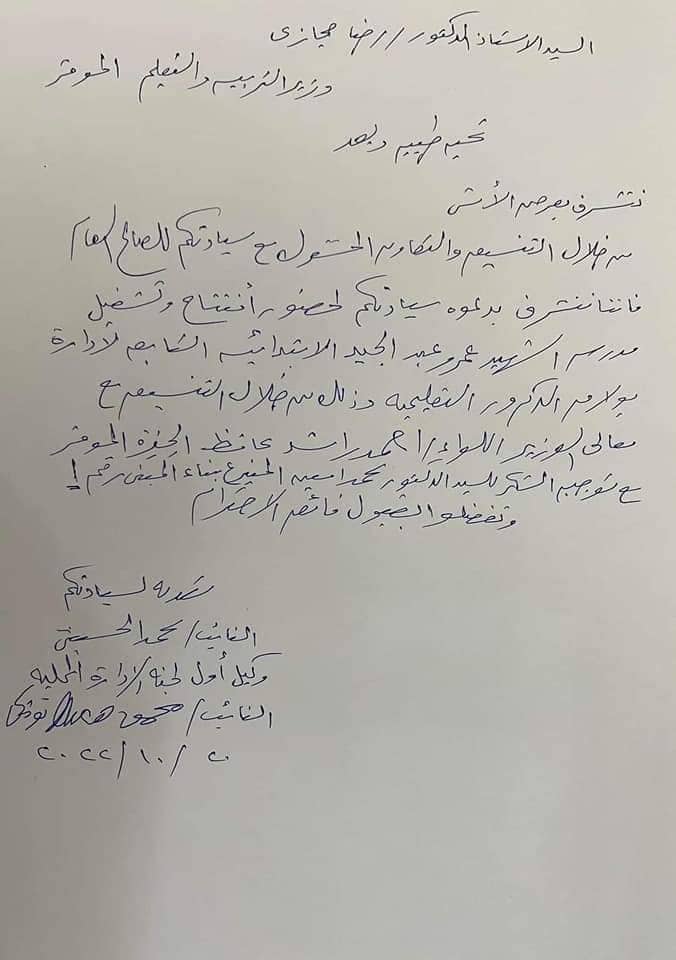 السيد الاستاذ الدكتور // رضا حجازى
وزير التربيه والتعليم الموقر
تحيه طيبه وبعد
نتشرف بعرض الأتى
من خلال التنسيق والتعاون المشمول مع سيادتكم للصالح العام
فاننا نتشرف بدعوه سيادتكم لحضور أفتتاح وتشغيل
مدرسه الشهيد عمرو عبد المجيد الابتدائيه التابعه لأدارة
بولاق الدكرور التعليميه وذلك من خلال التنسيق مع
معالى الوزير اللواء / احمد راشد محافظ الجيزة الموقر
مع توجيه الشكر للسيد الدكتور محمد امين المتبرع بناء المبنى رقم 1
وتفضلوا بقبول فائق الاحترام
مقدمه لسيادتكم
النائب / محمد الحسينى
وكيل أول لجنه الإدارة المحليه
النائب / محمود
٢٠٢٢/١٠/٢٠